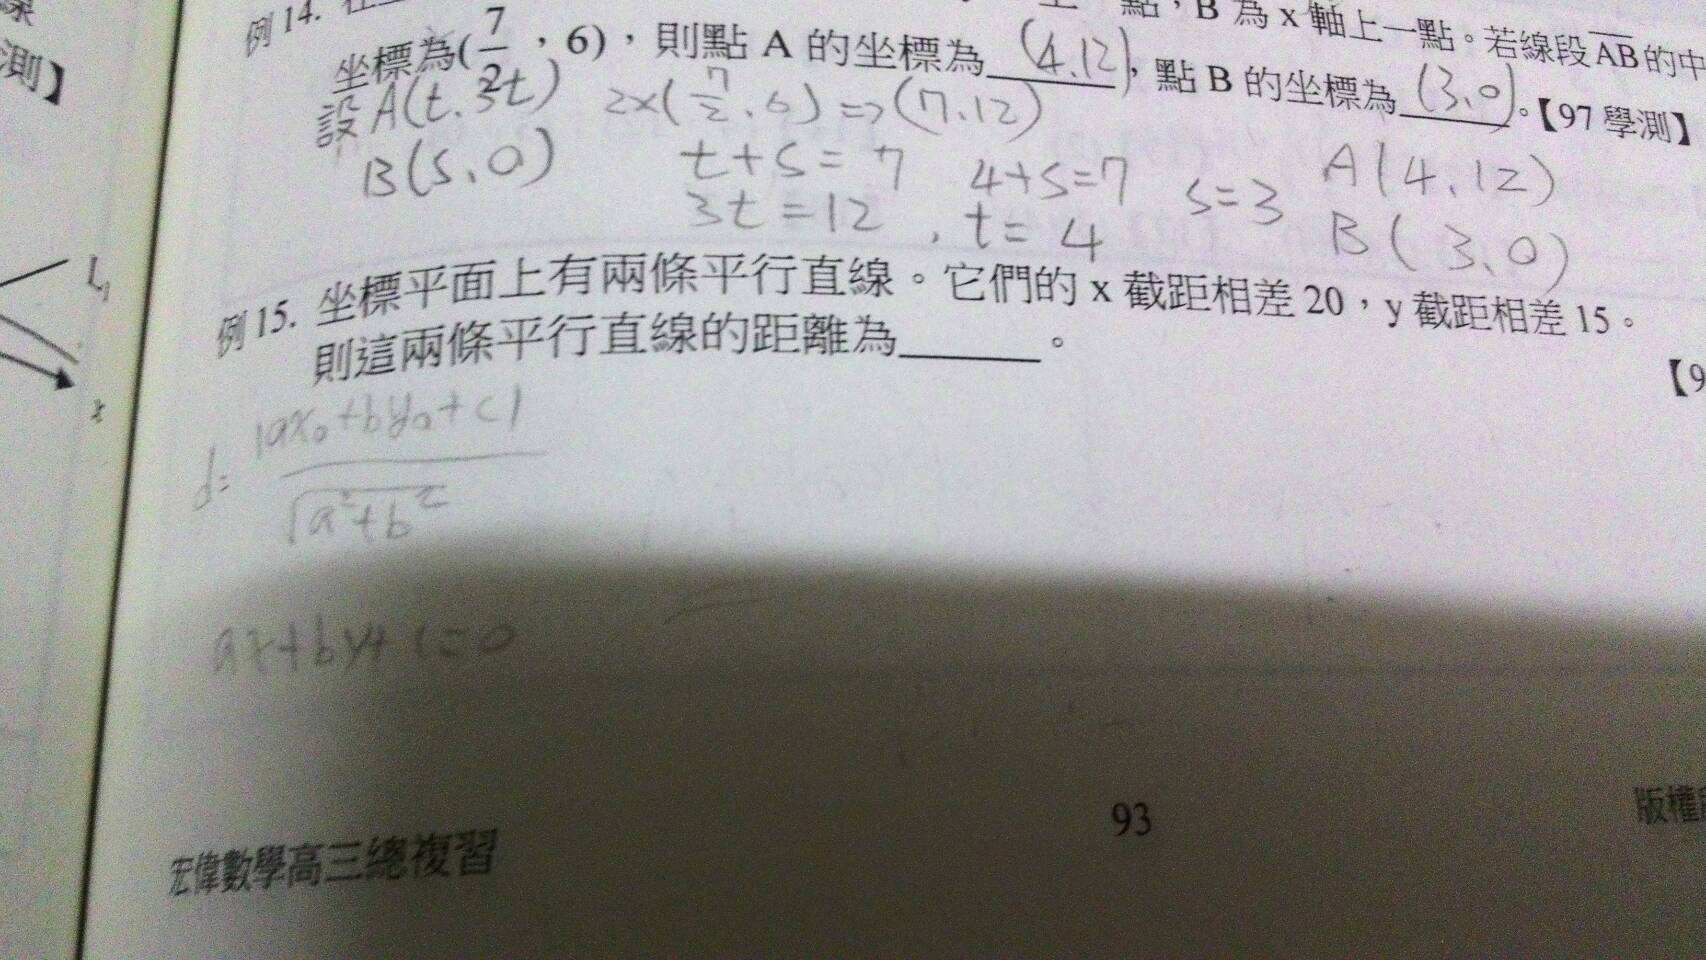 測】
例 14.
點，B 為 x 軸上一點。若線段AB的中
坐標為(7/2，6)，則點 A 的坐標為 (4,12)，點 B 的坐標為 (3,0)。【97 學測】
設 A(t, 3t) 2x(7/2, 6) => (7,12)
B(s, 0) t+s=7 4+s=7 s=3 A(4,12)
3t=12, t=4 B(3,0)
L₁
x
例 15. 坐標平面上有兩條平行直線。它們的 x 截距相差 20，y 截距相差 15。
則這兩條平行直線的距離為______。
【9
d= |ax₀+by₀+c| / √a²+b²
ax+by+c=0
93
版權
宏偉數學高三總複習